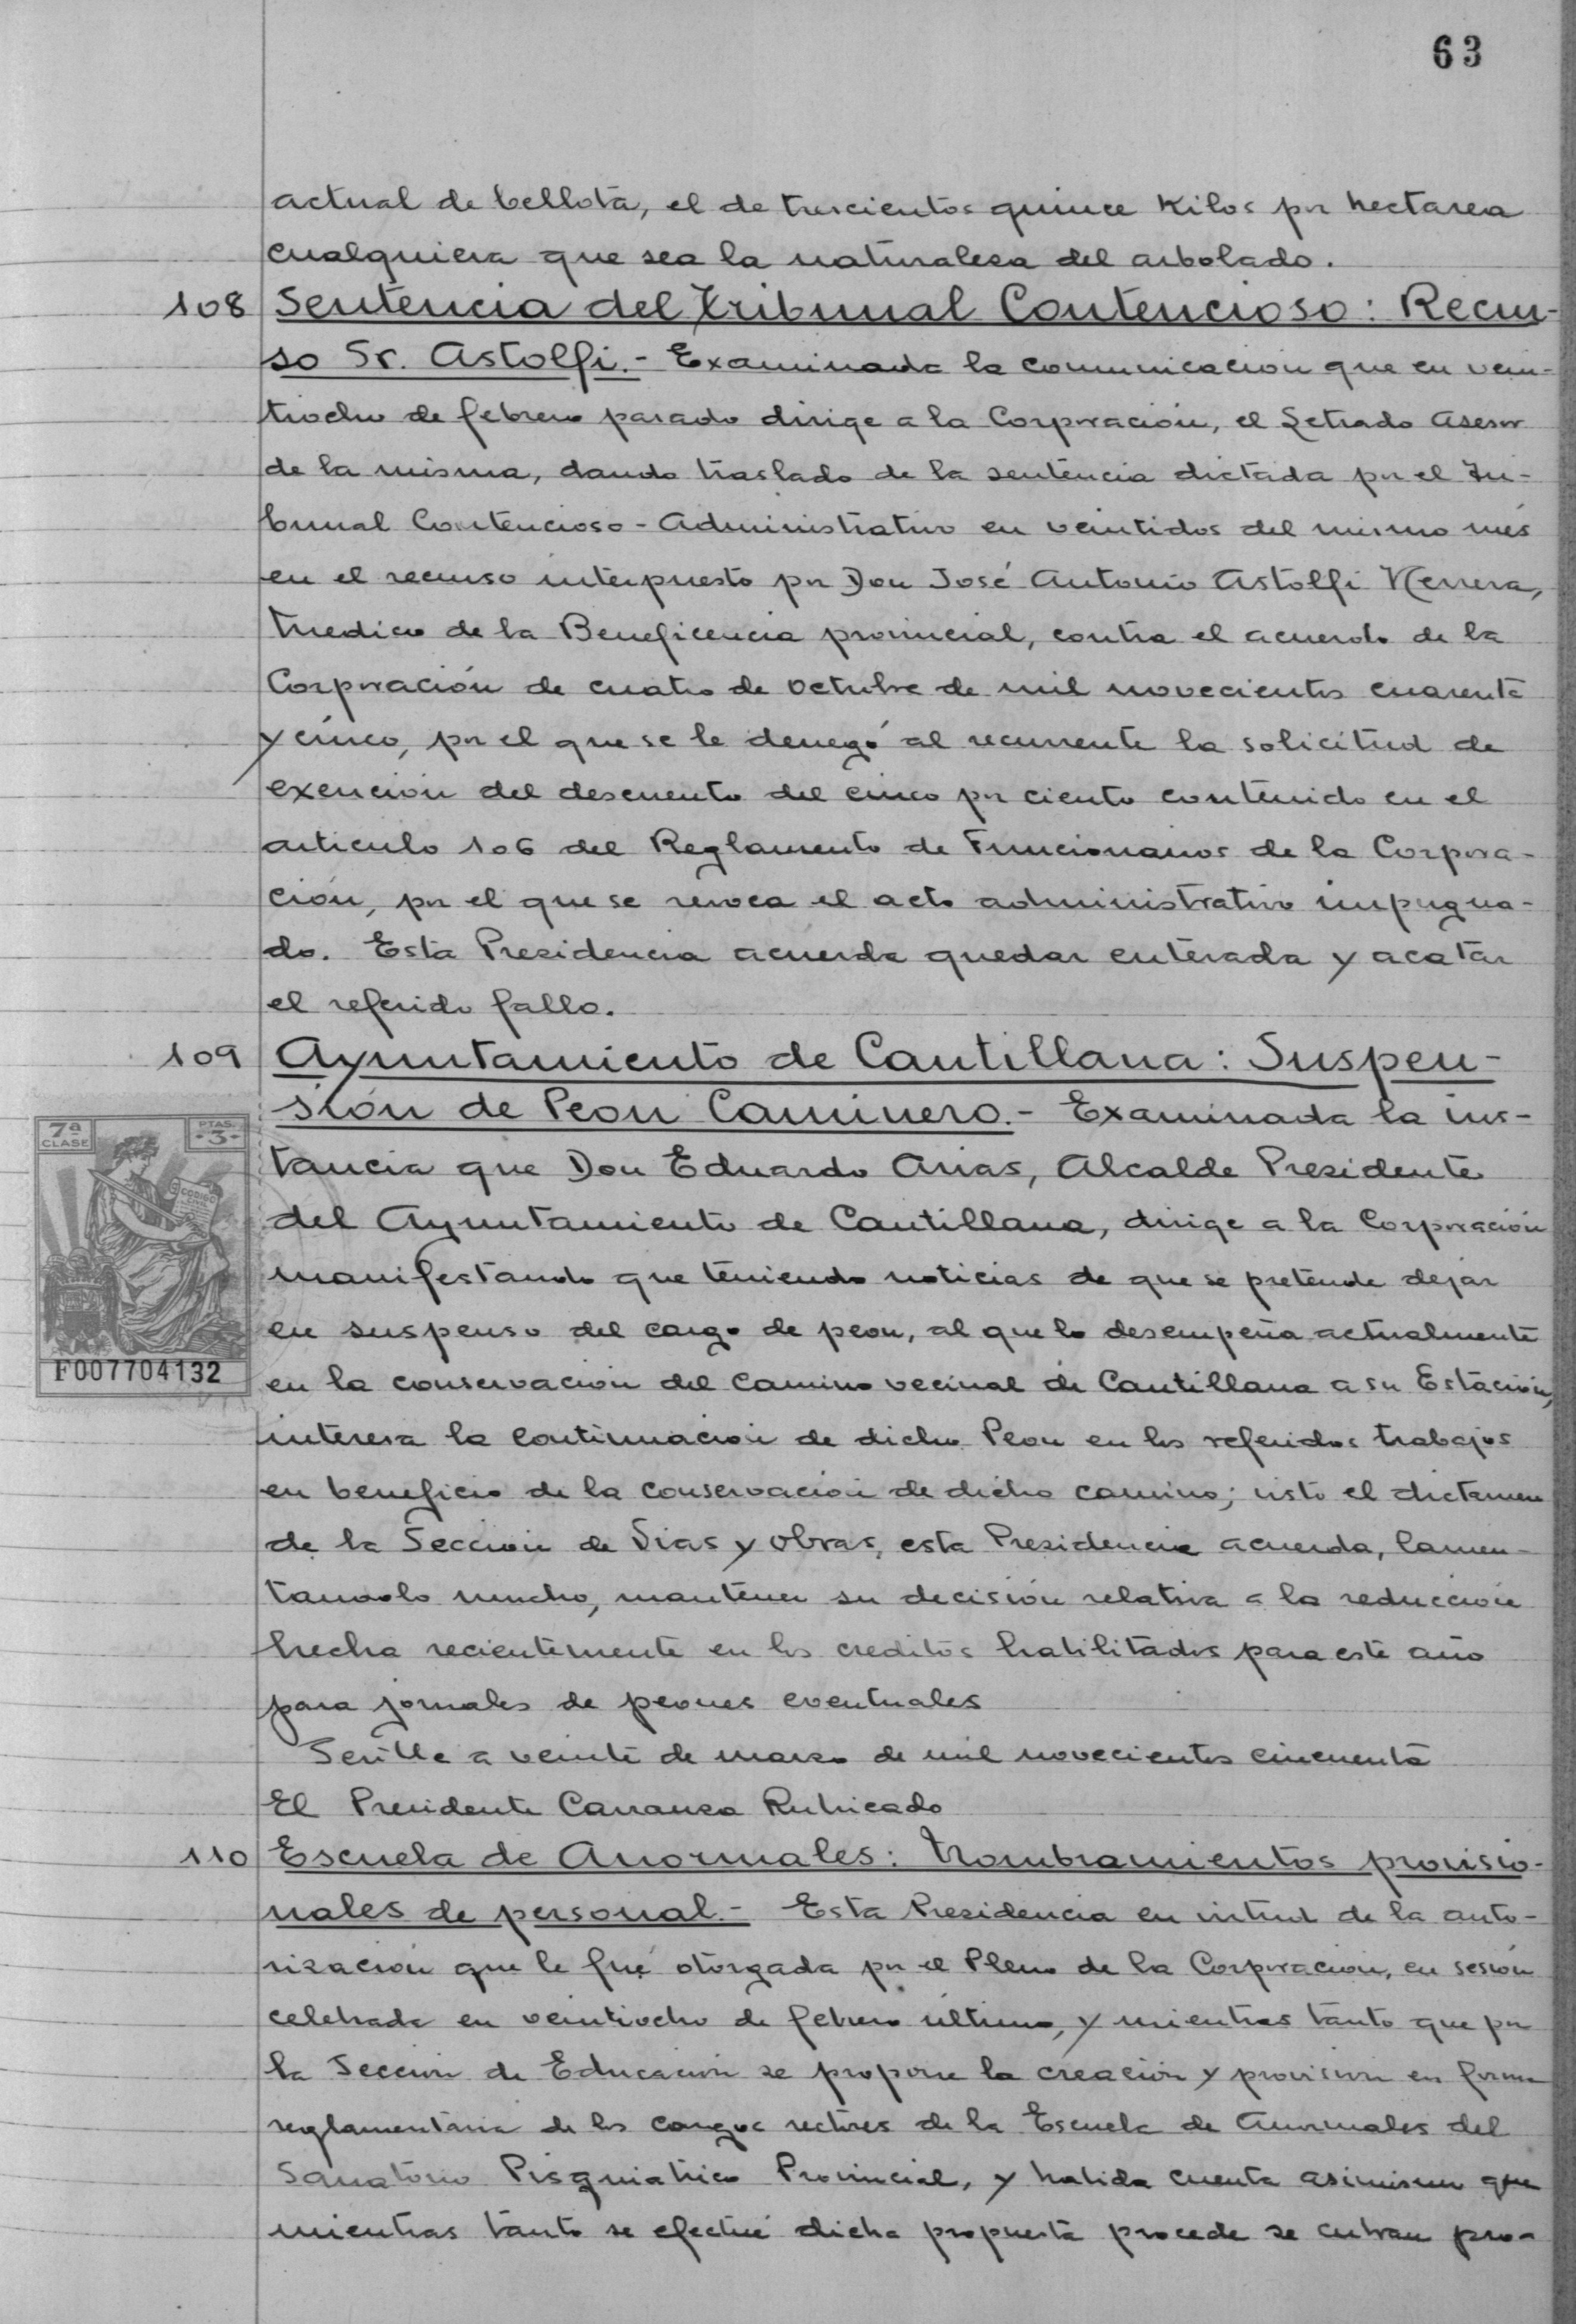 63
actual de bellota, el de trescientos quince Kilos por hectarea
cualquiera que sea la naturaleza del arbolado.
108 Sentencia del Tribunal Contencioso: Recur-
so Sr. Astolfi.- Examinada la comunicacion que en vein-
tiocho de febrero pasado dirige a la Corporación, el Letrado Asesor
de la misma, dando traslado de la sentencia dictada por el Tri-
bunal Contencioso-Administrativo en veintidos del mismo més
en el recurso interpuesto por Don José Antonio Astolfi Herrera,
Medico de la Beneficencia provincial, contra el acuerdo de la
Corporación de cuatro de octubre de mil novecientos cuarenta
y cinco, por el que se le denegó al recurrente la solicitud de
exención del descuento del cinco por ciento contenido en el
articulo 106 del Reglamento de Funcionarios de la Corpora-
ción, por el que se revoca el acto administrativo impugna-
do. Esta Presidencia acuerda quedar enterada y acatar
el referido fallo.
109 Ayuntamiento de Cantillana: Suspen-
sión de Peon Caminero.- Examinada la ins-
tancia que Don Eduardo Arias, Alcalde Presidente
del Ayuntamiento de Cantillana, dirige a la Corporación
manifestando que teniendo noticias de que se pretende dejar
en suspenso del cargo de peon, al que lo desempeña actualmente
en la conservacion del camino vecinal de Cantillana a su Estación,
interesa la continuacion de dicho Peon en los referidos trabajos
en beneficio de la conservación de dicho camino; visto el dictamen
de la Sección de Vias y Obras, esta Presidencia acuerda, lamen-
tandolo mucho, mantener su decisión relativa a la reducción
hecha recientemente en los creditos habilitados para este año
para jornales de peones eventuales
Sevilla a veinte de marzo de mil novecientos cincuenta
El Presidente Carranza Rubricado
110 Escuela de Anormales: Nombramientos provisio-
nales de personal.- Esta Presidencia en virtud de la auto-
rización que le fué otorgada por el Pleno de la Corporacion, en sesión
celebrada en veintiocho de febrero último, y mientras tanto que por
la Seccion de Educación se propone la creación y provision en forma
reglamentaria de los cargos rectores de la Escuela de Anormales del
Sanatorio Pisquiatrico Provincial, y habida cuenta asimismo que
mientras tanto se efectué dicha propuesta procede se cubran pro-
7ª CLASE
PTAS. -3-
CODIGO
F007704132